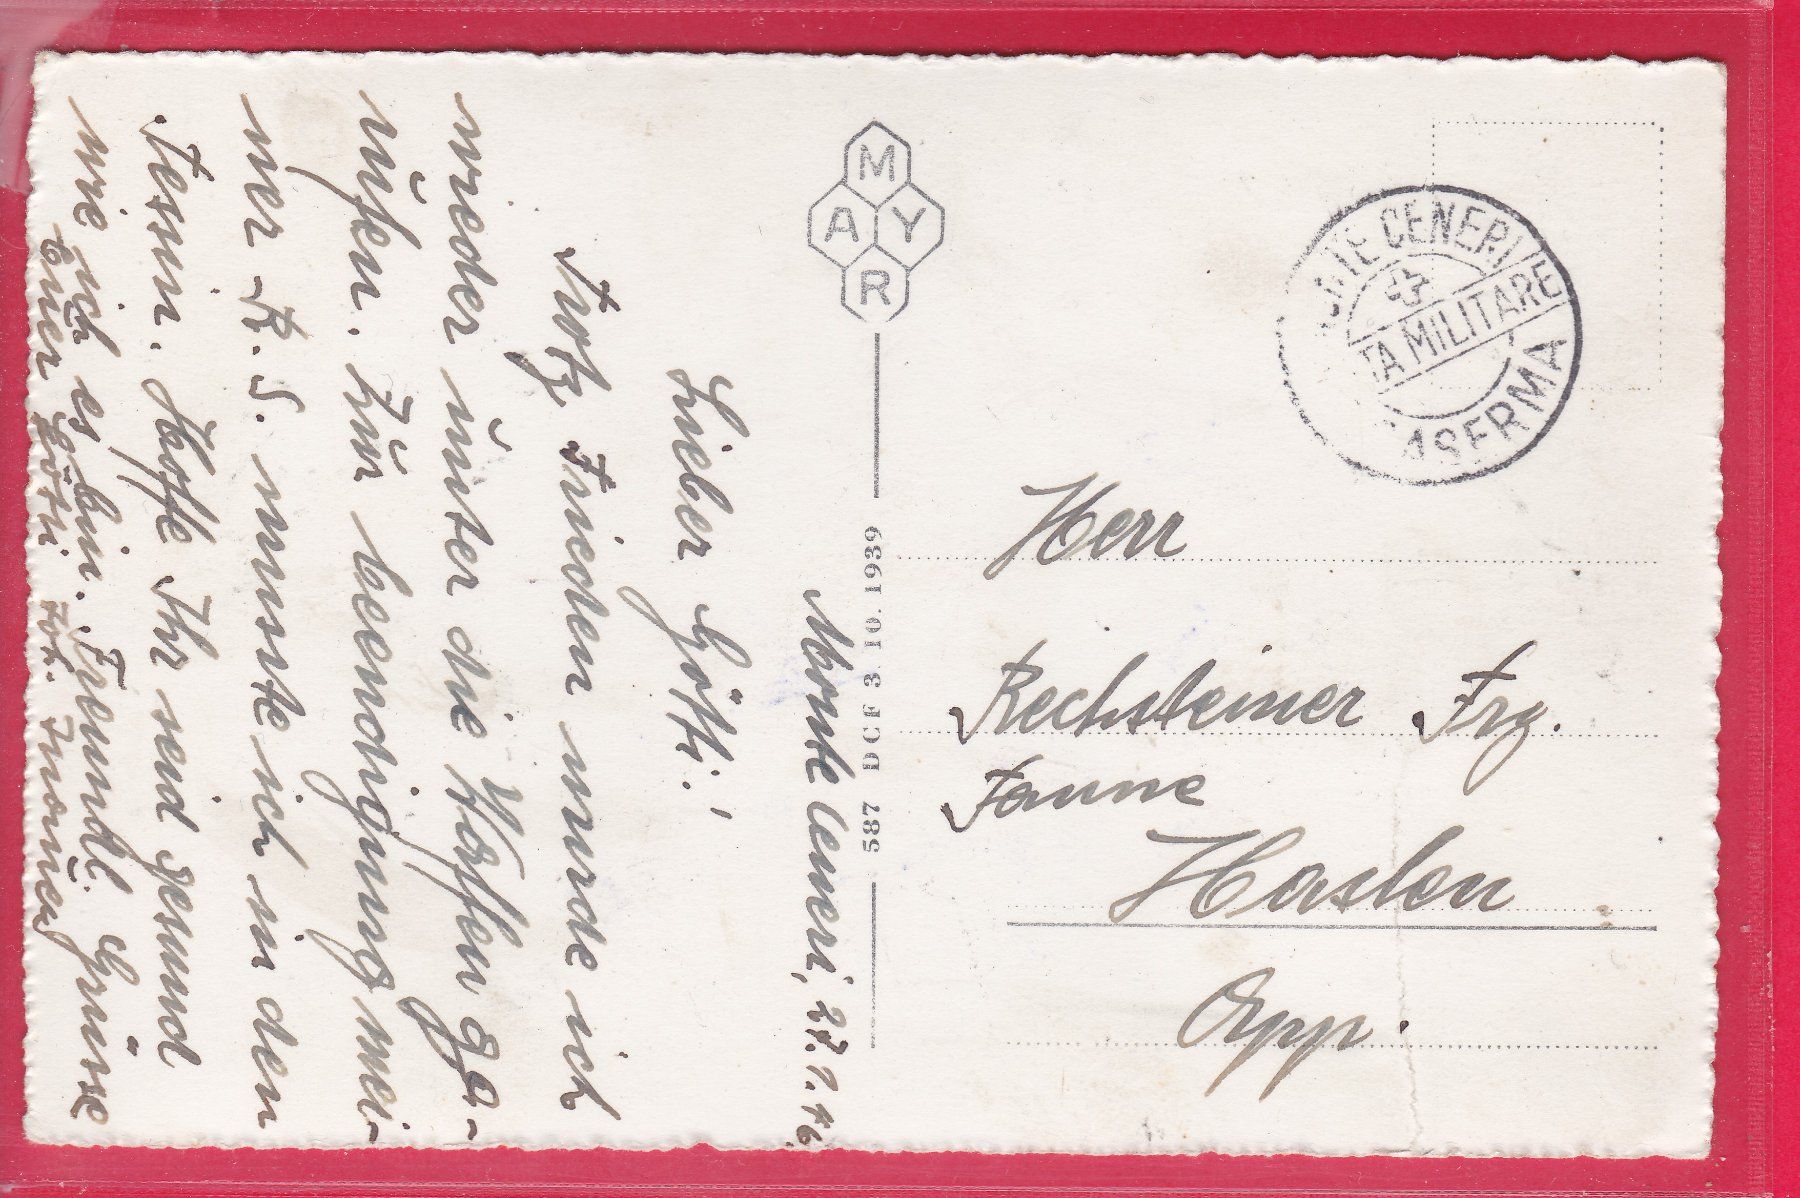 Monte Ceneri, 27.1.46.
Lieber Götti!
Trotz Frieden wurde ich
wieder unter die Waffen ge-
rufen. Zur beendigung mei-
ner R.S. musste ich in den
Tessin. Hoffe Ihr seid gesund
wie ich es bin. Freundl. Grüsse
Euer Götti Joh.
M
A Y
R
587 DCF 3 10. 1939
MONTE CENERI
TA MILITARE
CASERMA
Herr
Rechsteiner Frz.
Tanne
Haslen
App.